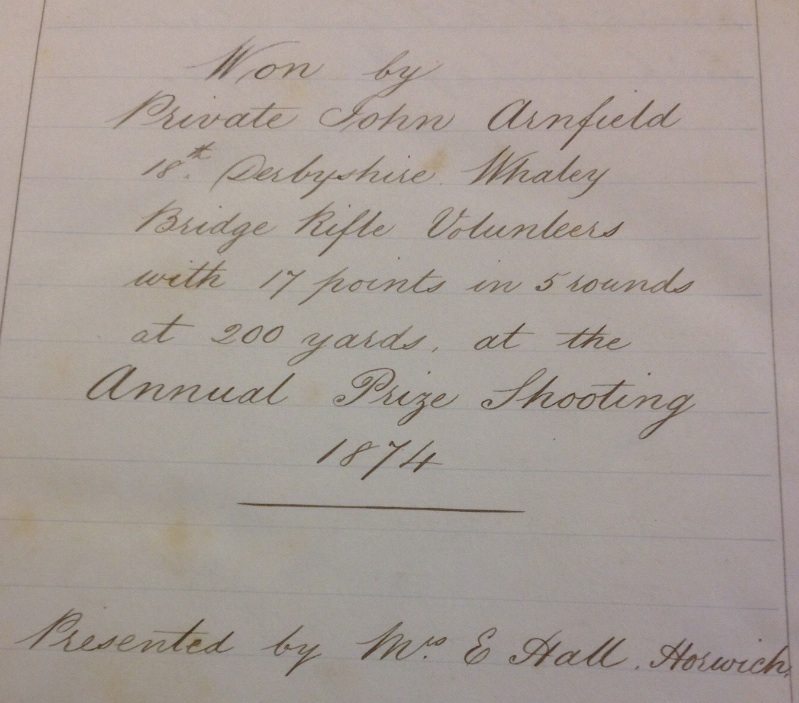 Won by
Private John Arnfield
18th. Derbyshire. Whaley
Bridge Rifle Volunteers
with 17 points in 5 rounds
at 200 yards, at the
Annual Prize Shooting
1874
Presented by Mrs. E Hall. Horwich.